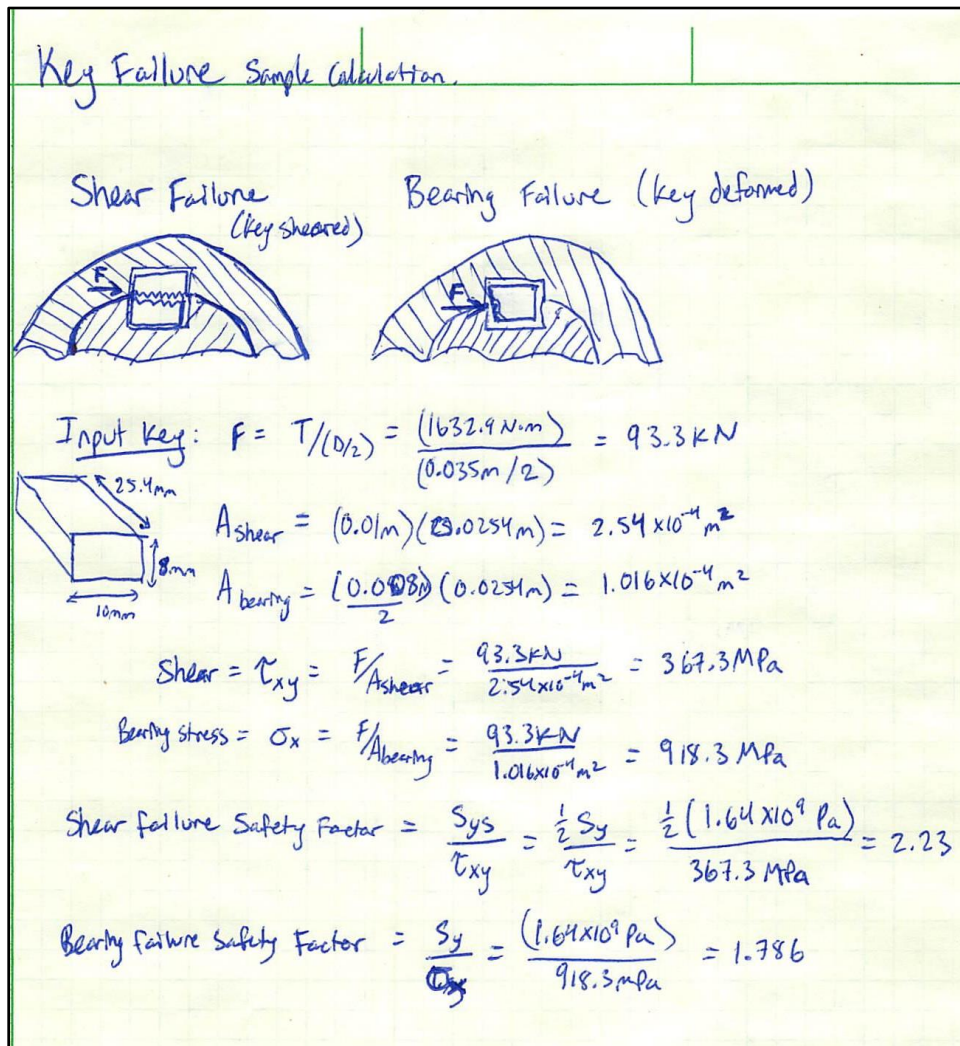 Key Failure Sample Calculation.
Shear Failure
(key sheared)
Bearing Failure (key deformed)
F
F
Input Key: F = T/(D/2) = (1632.9 N·m)/(0.035m/2) = 93.3 KN
25.4mm
8mm
10mm
A shear = (0.01m)(0.0254m) = 2.54 x10⁻⁴ m²
A bearing = (0.008m)/2 (0.0254m) = 1.016x10⁻⁴ m²
Shear = τxy = F/Ashear = 93.3KN/2.54x10⁻⁴m² = 367.3MPa
Bearing stress = σx = F/Abearing = 93.3KN/1.016x10⁻⁴m² = 918.3 MPa
Shear failure Safety Factor = Sys/τxy = ½ Sy/τxy = ½(1.64 x10⁹ Pa)/367.3 MPa = 2.23
Bearing failure Safety Factor = Sy/σx = (1.64x10⁹ Pa)/918.3 mPa = 1.786